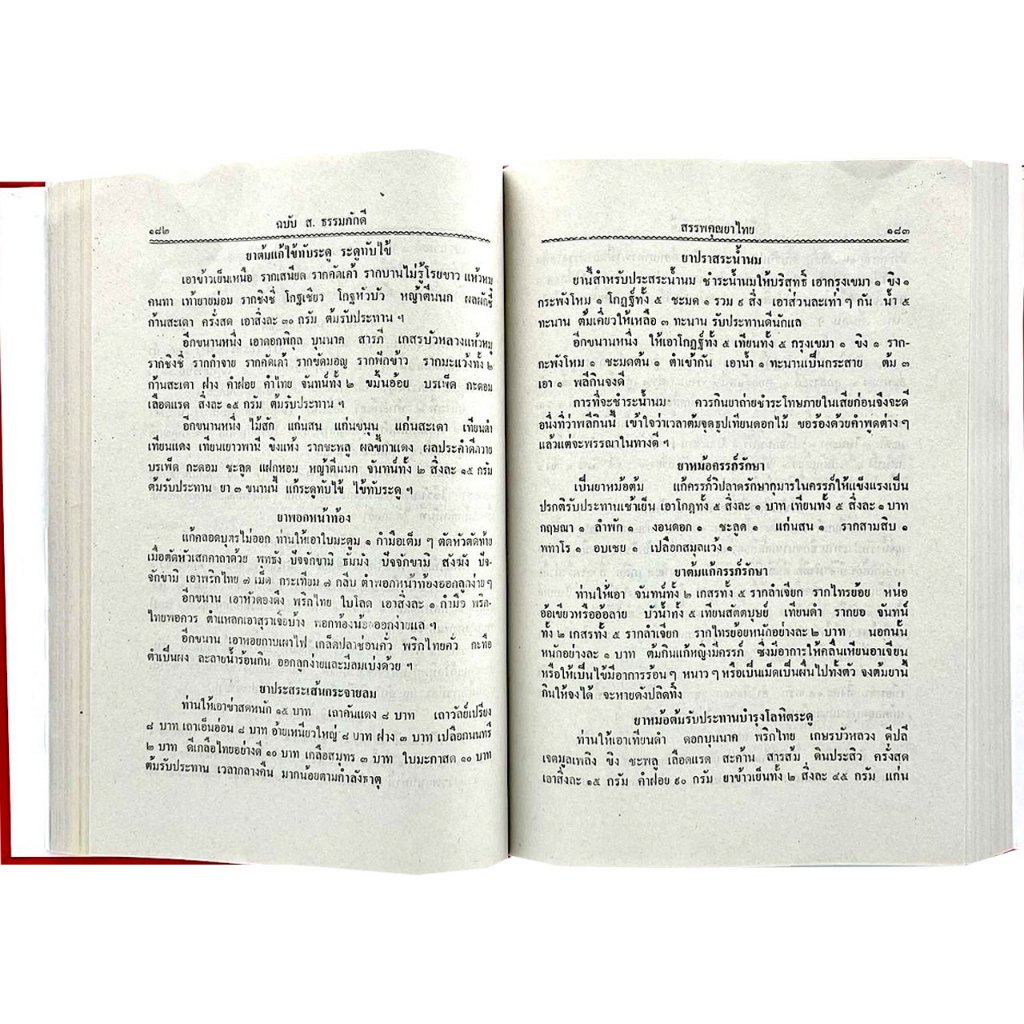 ๑๘๒ ฉบับ ส. ธรรมภักดี
ยาต้มแก้ไข้ทับระดู ระดูทับไข้
เอาข้าวเย็นเหนือ รากเสนียด รากคัดเค้า รากบานไม่รู้โรยขาว แห้วหมู
คนทา เท้ายายม่อม รากชิงชี่ โกฐเชียว โกฐหัวบัว หญ้าตีนนก ผลผักชี
ก้านสะเดา ครั่งสด เอาสิ่งละ ๓๐ กรัม ต้มรับประทาน ฯ
อีกขนานหนึ่ง เอาดอกพิกุล บุนนาค สารภี เกสรบัวหลวงแห้วหมู
รากชิงชี่ รากกำจาย รากคัดเค้า รากขัดมอญ รากพักข้าว รากมะแว้งทั้ง ๒
ก้านสะเดา ฝาง คำฝอย คำไทย จันทน์ทั้ง ๒ ขมิ้นอ้อย บรเพ็ด กะดอม
เลือดแรด สิ่งละ ๑๕ กรัม ต้มรับประทาน ฯ
อีกขนานหนึ่ง ไม้สัก แก่นสน แก่นขนุน แก่นสะเดา เทียนดำ
เทียนแดง เทียนเยาวพานี ขิงแห้ง รากชะพลู ผลขี้กาแดง ผลประคำดีควาย
บรเพ็ด กะดอม ชะลูด แฝกหอม หญ้าตีนนก จันทน์ทั้ง ๒ สิ่งละ ๑๕ กรัม
ต้มรับประทาน ยา ๓ ขนานนี้ แก้ระดูทับไข้ ไข้ทับระดู ฯ
ยาพอกหน้าท้อง
แก้คลอดบุตรไม่ออก ท่านให้เอาใบมะตูม ๑ กำมือเต็ม ๆ ตัดหัวตัดท้าย
เมื่อตัดหัวเสกคาถาด้วย พุทธัง ปัจจักขามิ ธัมมัง ปัจจักขามิ สังฆัง ปัจ-
จักขามิ เอาพริกไทย ๗ เม็ด กระเทียม ๗ กลีบ ตำพอกหน้าท้องออกลูกง่าย ๆ
อีกขนาน เอาหัวดองดึง พริกไทย ใบโลด เอาสิ่งละ ๑ กำมือ พริก-
ไทยพอควร ตำแหลกเอาสุราเจือบาง พอกท้องน้อยออกง่ายแล ฯ
อีกขนาน เอาหอยกาบเผาไฟ เกล็ดปลาช่อนคั่ว พริกไทยคั่ว กะทือ
ตำเป็นผง ละลายน้ำร้อนกิน ออกลูกง่ายและมีลมเบ่งด้วย ฯ
ยาประสะเส้นกระจายลม
ท่านให้เอาข่าสดหนัก ๑๕ บาท เถาคันแดง ๘ บาท เถาวัลย์เปรียง
๘ บาท เถาเอ็นอ่อน ๘ บาท อ้ายเหนียวใหญ่ ๘ บาท ฝาง ๓ บาท เปลือกกนทรี
๒ บาท ดีเกลือไทยอย่างดี ๑๐ บาท เกลือสมุทร ๓ บาท ใบมะกาสด ๑๐ บาท
ต้มรับประทาน เวลากลางคืน มากน้อยตามกำลังธาตุ
สรรพคุณยาไทย ๑๘๓
ยาปราสระน้ำนม
ยานี้สำหรับประสระน้ำนม ชำระน้ำนมให้บริสุทธิ์ เอากรุงเขมา ๑ ขิง ๑
กระพังโหม ๑ โกฏฐ์ทั้ง ๕ ชะมด ๑ รวม ๙ สิ่ง เอาส่วนละเท่า ๆ กัน น้ำ ๕
ทะนาน ต้มเคี่ยวให้เหลือ ๓ ทะนาน รับประทานดีนักแล
อีกขนานหนึ่ง ให้เอาโกฏฐ์ทั้ง ๕ เทียนทั้ง ๕ กรุงเขมา ๑ ขิง ๑ ราก-
กะพังโหม ๑ ชะมดต้น ๑ ตำเข้ากัน เอาน้ำ ๑ ทะนานเป็นกระสาย ต้ม ๓
เอา ๑ พลีกินจงดี
การที่จะชำระน้ำนม ควรกินยาถ่ายชำระโทษภายในเสียก่อนจึงจะดี
อนึ่งที่ว่าพลีกินนี้ เข้าใจว่าเวลาต้มจุดธูปเทียนดอกไม้ ขอร้องด้วยคำพูดต่าง ๆ
แล้วแต่จะพรรณาในทางดี ฯ
ยาหม้อครรภ์รักษา
เป็นยาหม้อต้ม แก้ครรภ์วิปลาตรักษากุมารในครรภ์ให้แข็งแรงเป็น
ปรกติรับประทานเช้าเย็น เอาโกฏทั้ง ๕ สิ่งละ ๑ บาท เทียนทั้ง ๕ สิ่งละ ๑ บาท
กฤษณา ๑ ลำพัก ๑ งอนดอก ๑ ชะลูด ๑ แก่นสน ๑ รากสามสิบ ๑
พทาโร ๑ อบเชย ๑ เปลือกสมุลแว้ง ๑
ยาต้มแก้ครรภ์รักษา
ท่านให้เอา จันทน์ทั้ง ๒ เกสรทั้ง ๕ รากลำเจียก รากไทรย้อย หน่อ
อ้อเขียวหรืออ้อลาย บัวน้ำทั้ง ๕ เทียนสัตตบุษย์ เทียนดำ รากยอ จันทน์
ทั้ง ๒ เกสรทั้ง ๕ รากลำเจียก รากไทรย้อยหนักอย่างละ ๒ บาท นอกนั้น
หนักอย่างละ ๑ บาท ต้มกินแก้หญิงมีครรภ์ ซึ่งมีอาการให้คลื่นเหียนอาเจียน
หรือให้เป็นไข้มีอาการร้อน ๆ หนาว ๆ หรือเป็นเม็ดเป็นผื่นไปทั้งตัว จงต้มยานี้
กินให้จงได้ จะหายดังปลิดทิ้ง
ยาหม้อต้มรับประทานบำรุงโลหิตระดู
ท่านให้เอาเทียนดำ ดอกบุนนาค พริกไทย เกษรบัวหลวง ดีปลี
เจตมูลเพลิง ขิง ชะพลู เลือดแรด สะค้าน สารส้ม ดินประสิว ครั่งสด
เอาสิ่งละ ๑๕ กรัม คำฝอย ๙๐ กรัม ยาข้าวเย็นทั้ง ๒ สิ่งละ ๔๕ กรัม แก่น